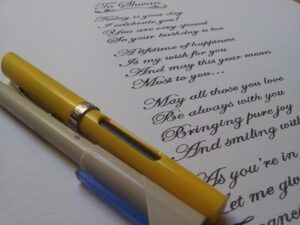 To Shwin
Today is your day
I celebrate you!
You are very special
So your birthday is too
A lifetime of happiness
Is my wish for you
And may this year mean
Most to you...
May all those you love
Be always with you
Bringing pure joy
And smiling with
As you're in
Let me give